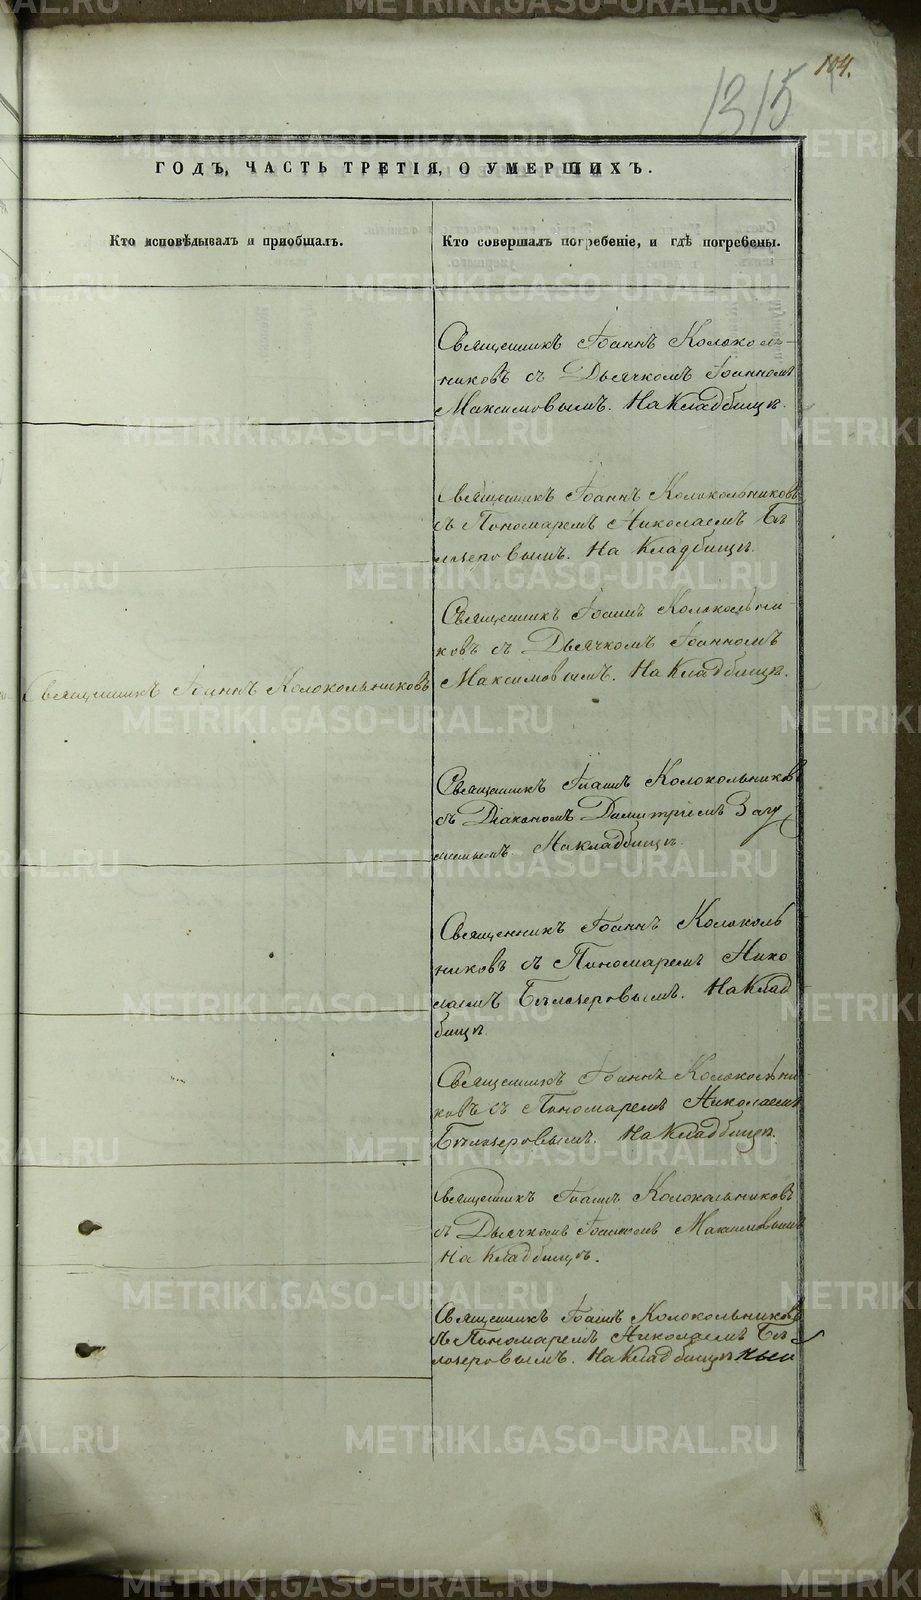 104.
1315
ГОДЪ, ЧАСТЬ ТРЕТІЯ, О УМЕРШИХЪ.
Кто исповѣдывалъ и приобщалъ.
Кто совершалъ погребеніе, и гдѣ погребены.
Священникъ Іоаннъ Колоколь-
никовъ съ Дьячкомъ Іоанномъ
Максимовымъ. На Кладбищѣ.
Священникъ Іоаннъ Колокольниковъ
съ Пономаремъ Николаемъ Бѣ
лозеровымъ. На Кладбищѣ.
Священникъ Іоаннъ Колокольни-
ковъ съ Дьячкомъ Іоанномъ
Максимовымъ. На Кладбищѣ.
Священникъ Іоаннъ Колокольниковъ
Священникъ Іоаннъ Колокольниковъ
съ Діакономъ Димитріемъ
На кладбищѣ.
Священникъ Іоаннъ Колоколь
никовъ съ Пономаремъ Нико
лаемъ Бѣлозеровымъ. На Клад
бищѣ.
Священникъ Іоаннъ Колокольни
ковъ съ Пономаремъ Николаемъ
Бѣлозеровымъ. На Кладбищѣ.
Священникъ Іоаннъ Колокольниковъ
съ Дьячкомъ Іоанномъ Максимовымъ
На Кладбищѣ.
Священникъ Іоаннъ Колокольниковъ
съ Пономаремъ Николаемъ Бѣ
лозеровымъ. На Кладбищѣ
METRIKI.GASO-URAL.RU